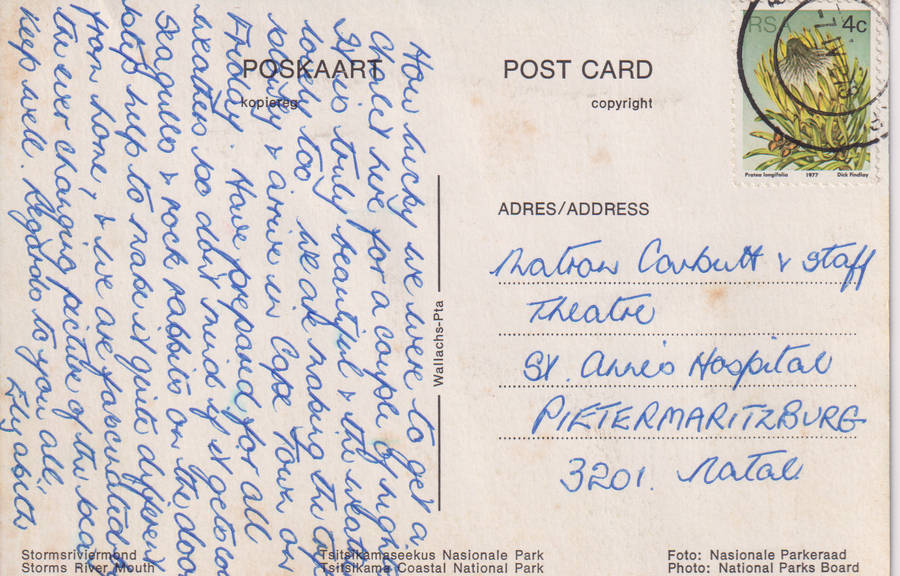 POSKAART
kopiereg
POST CARD
copyright
RSA 4c
Protea longifolia 1977 Dick Findlay
How lucky we were to get a
Chalet here for a couple of nights
It is truly beautiful & the weather
lovely too. We are making the
slowly & arrive in Cape Town on
Friday. Have prepared for all
weathers so don't mind if it gets cold
Seagulls & rock rabbits on the door
step help to make it quite different
from home, & we are fascinated by
the ever changing picture of the sea
Keep well. Regards to you all.
Elizabeth
Wallachs-Pta
ADRES/ADDRESS
Matron Corbutt & Staff
Theatre
St. Anne's Hospital
PIETERMARITZBURG
3201. Natal
Stormsriviermond
Storms River Mouth
Tsitsikamaseekus Nasionale Park
Tsitsikama Coastal National Park
Foto: Nasionale Parkeraad
Photo: National Parks Board